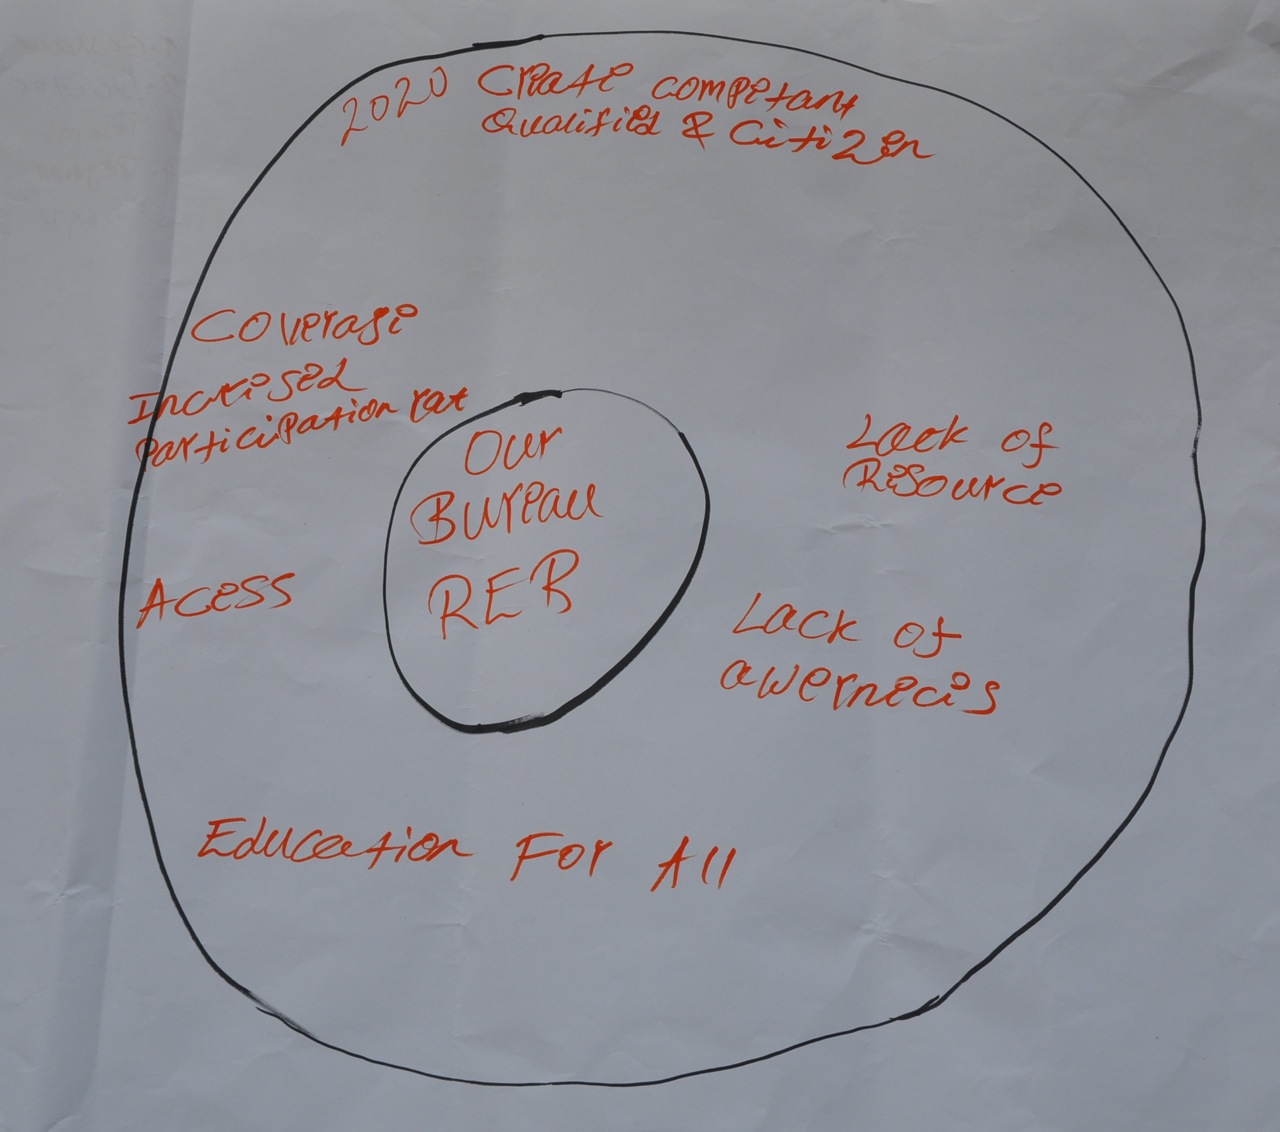 2020 Criati competant
Qualified & Citizen
Coveragi
Incrised
Participation rat
Our
Bureau
REB
Lack of
Risource
Acess
Lack of
awernicis
Education For All